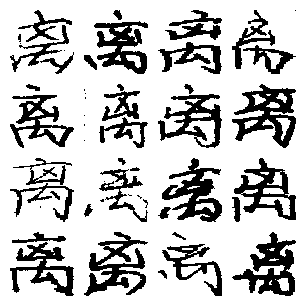 离离离离
离离离离
离离离离
离离离离